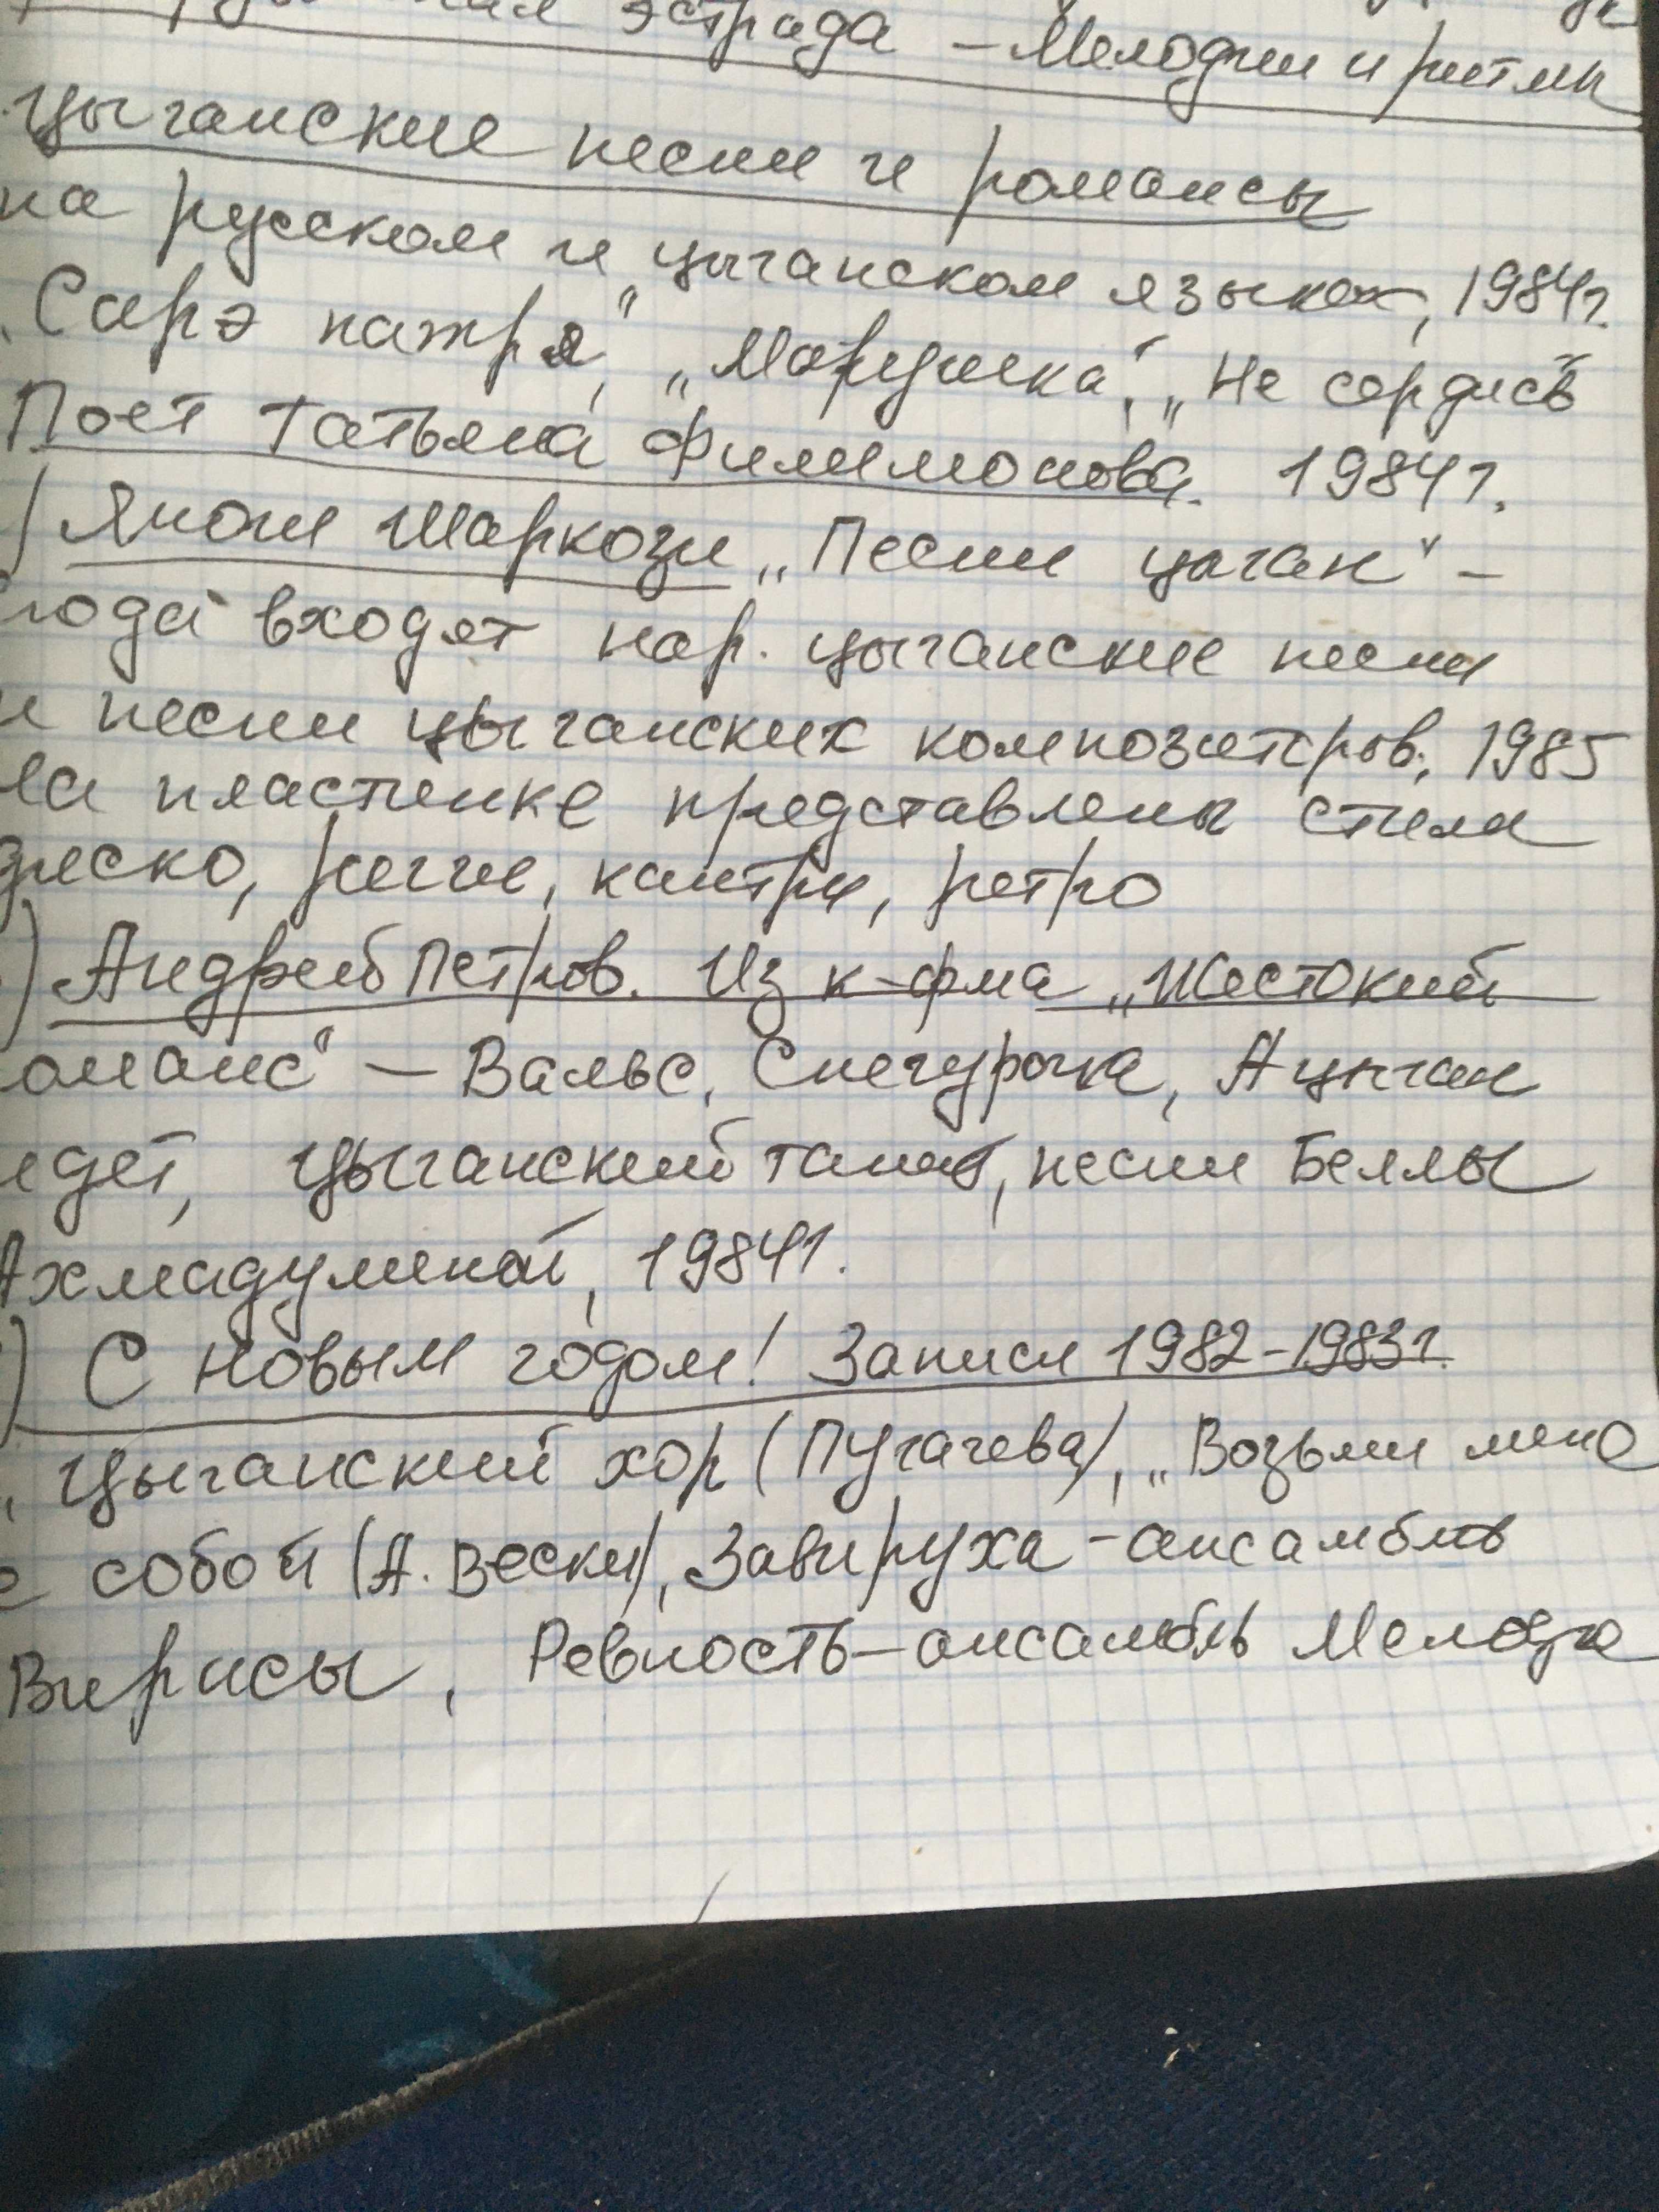 эстрада – Мелодии и ритмы
Цыганские песни и романсы
на русском и цыганском языках, 1984г.
„Сарэ патря", „Марушка", „Не сердись
Поет Татьяна Филимонова. 1984г.
) Янош Шаркози „Песни цыган" –
сюда входят нар. цыганские песни
и песни цыганских композиторов, 1985
На пластинке представлены стили
диско, регги, кантри, ретро
) Андрей Петров. Из к-фма „Жестокий
оманс" – Вальс, Снегурочка, А цыган
идет, Цыганский танец, песни Беллы
Ахмадулиной, 1984г.
) С Новым годом! Записи 1982–1983г.
„Цыганский хор (Пугачева), „Возьми меня
с собой (А. Вески), Завируха – ансамбль
Верасы, Ревность – ансамбль Мелодия